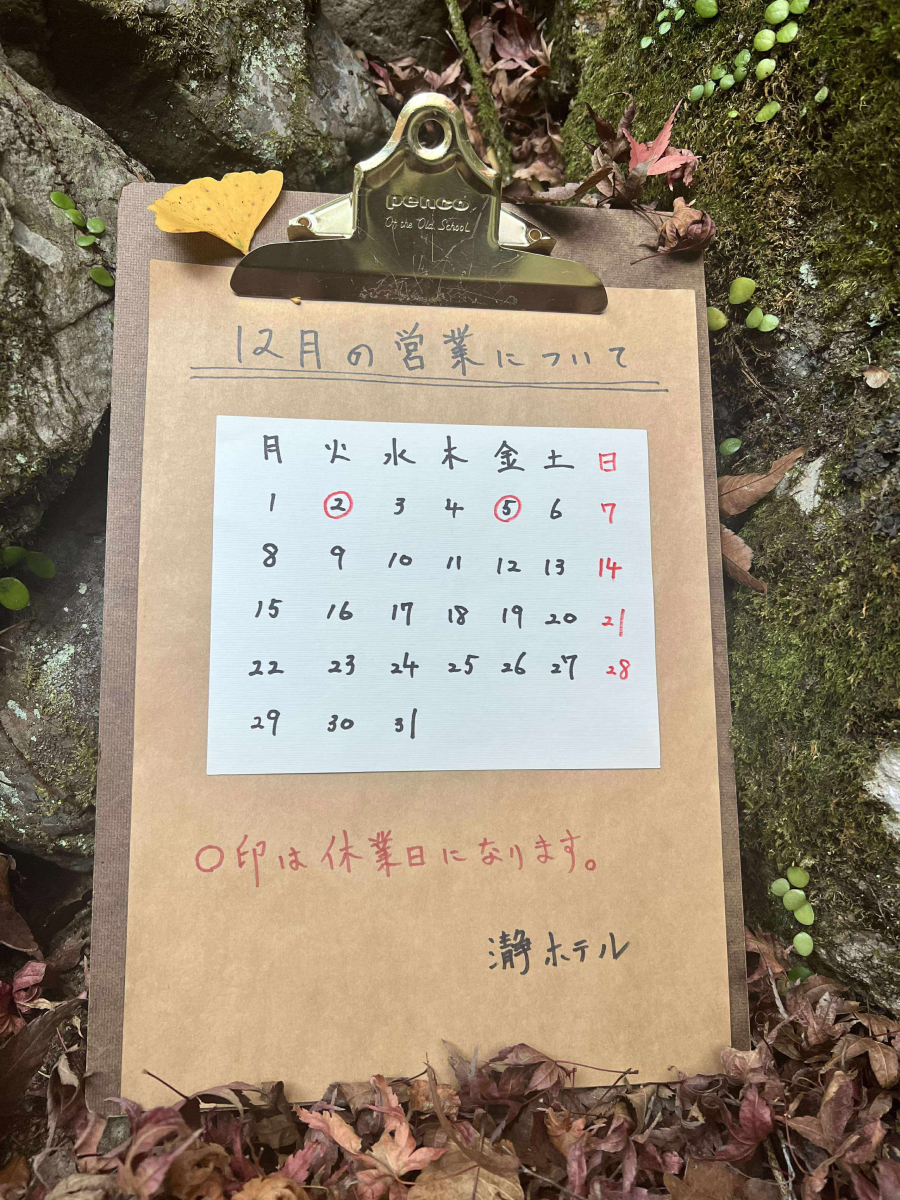 penco
Of the Old School
12月の営業について
月 火 水 木 金 土 日
1 2 3 4 5 6 7
8 9 10 11 12 13 14
15 16 17 18 19 20 21
22 23 24 25 26 27 28
29 30 31
○印は休業日になります。
瀞ホテル